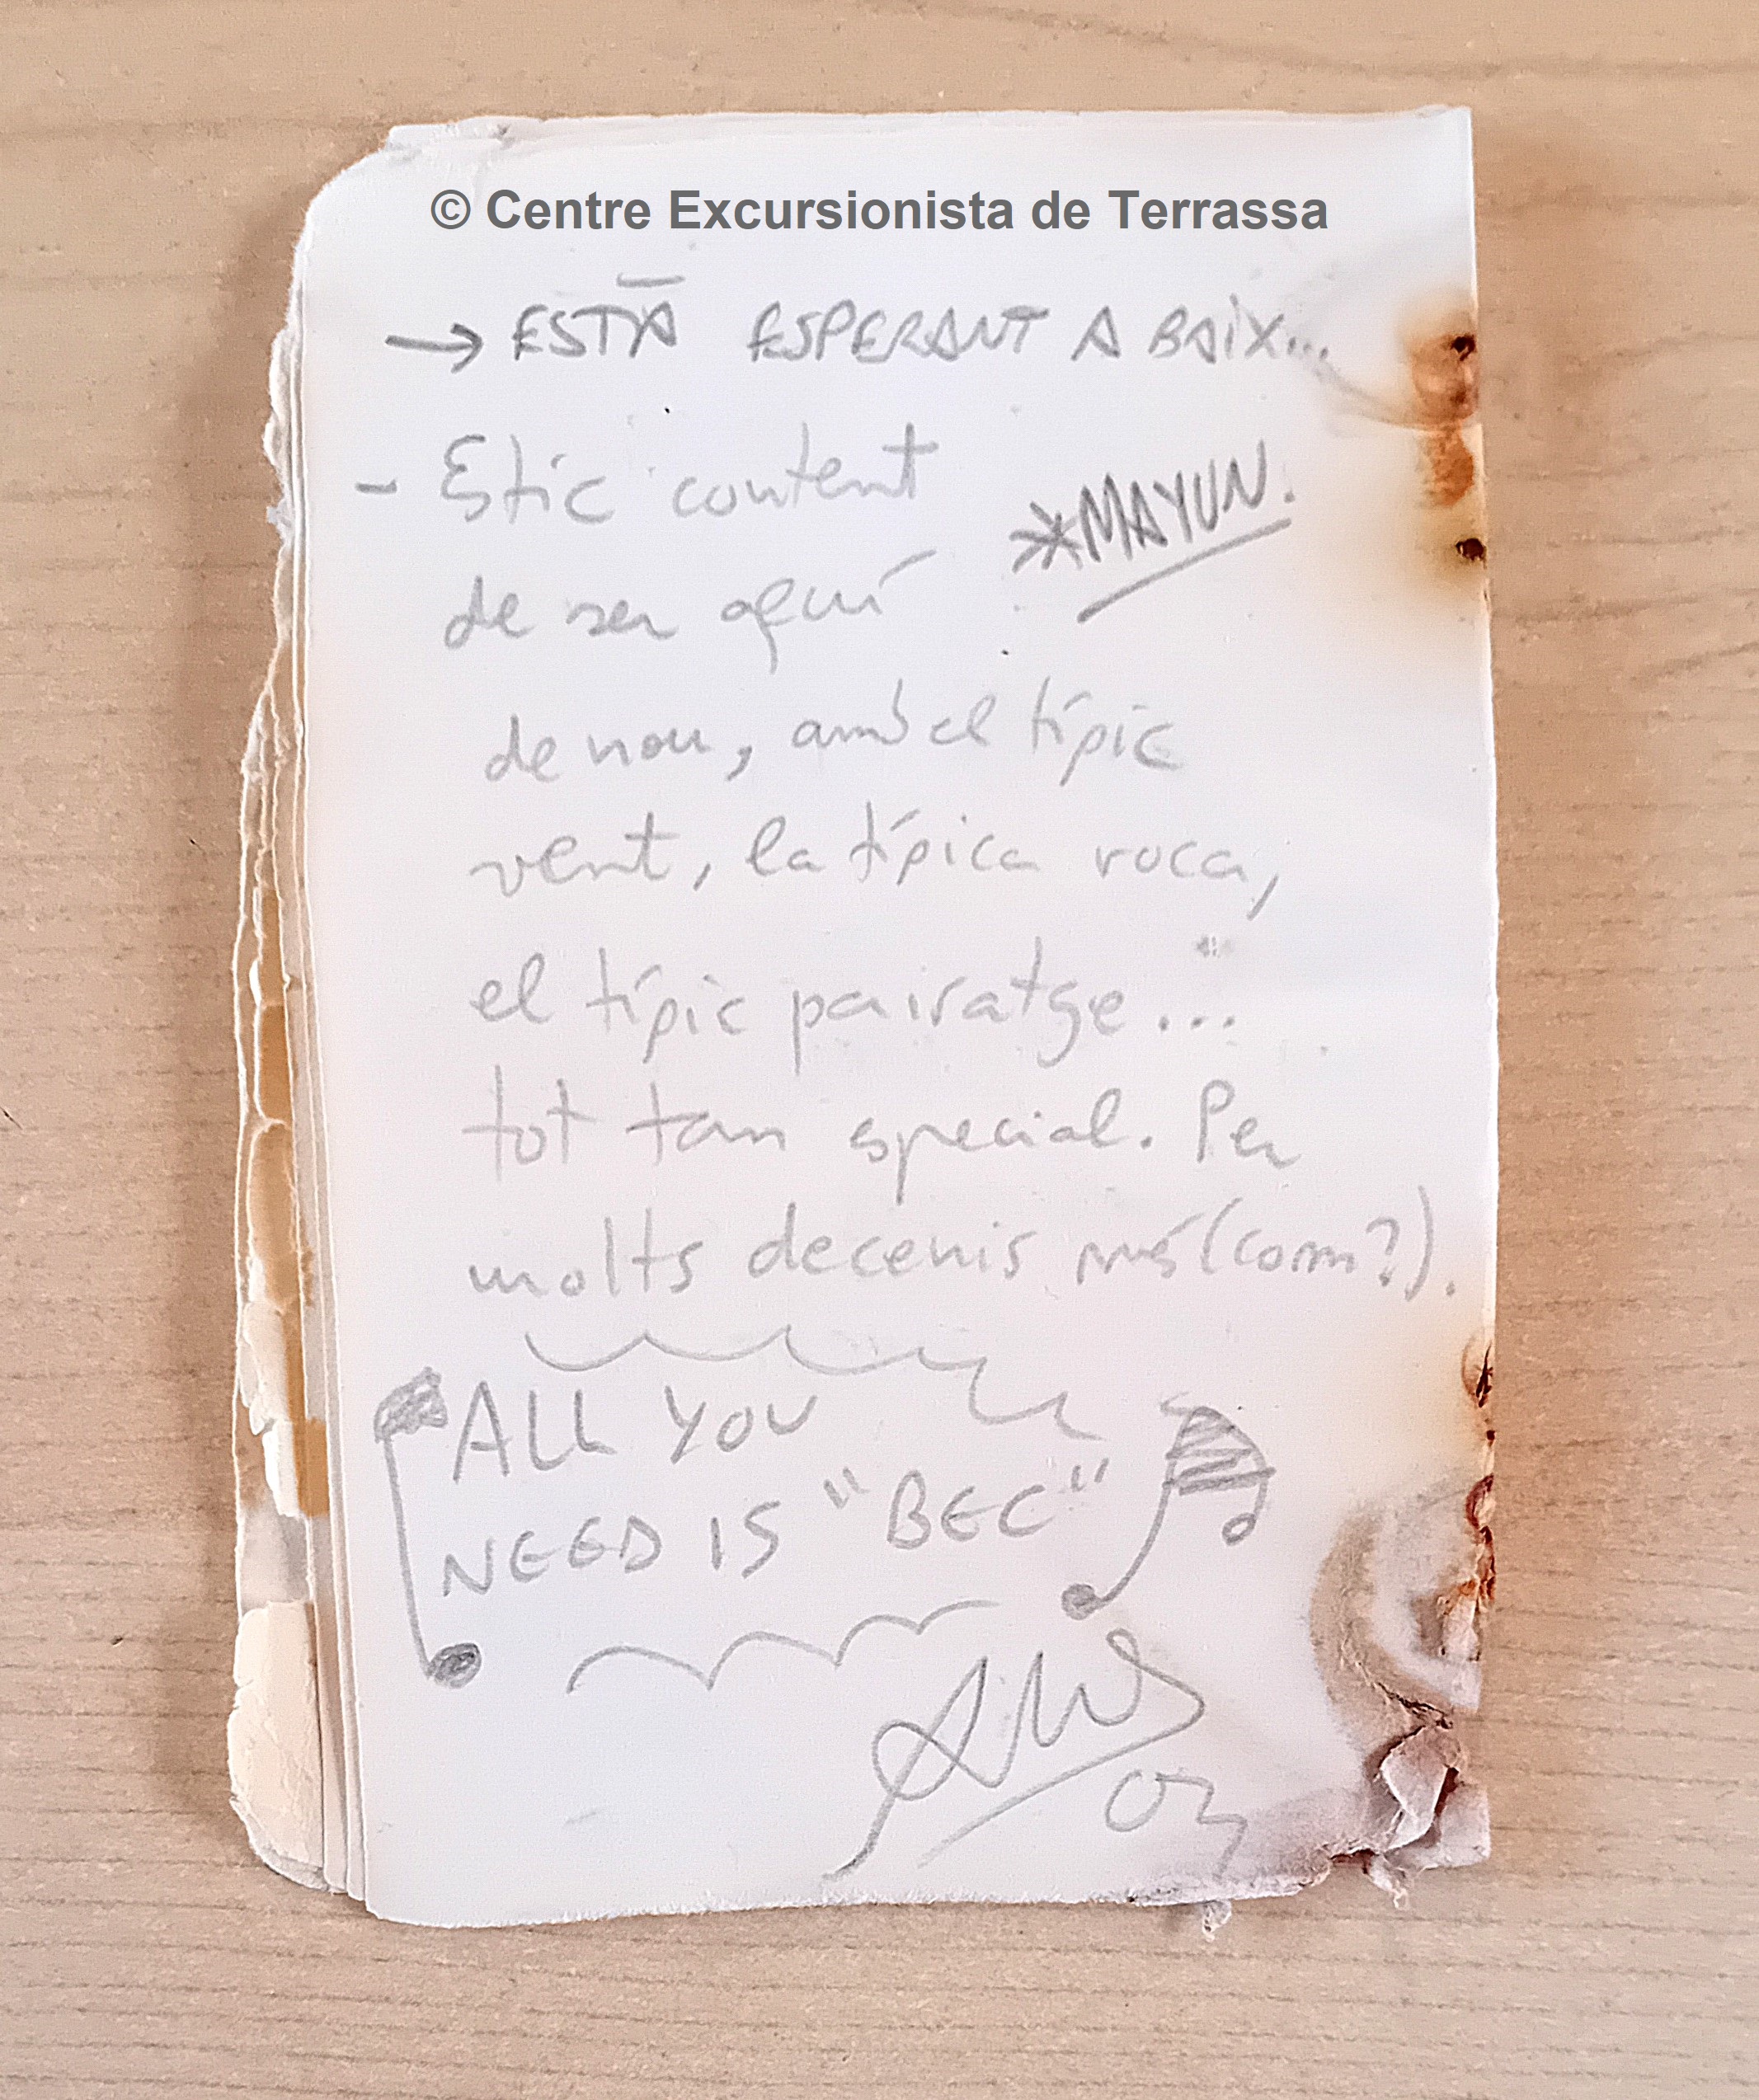 © Centre Excursionista de Terrassa
→ ESTÀ ESPERANT A BAIX...
- Estic content
*MAYUN.
de ser aquí
de nou, amb el típic
vent, la típica roca,
el típic paisatge...
tot tan especial. Per
molts decenis més (com?).
ALL YOU
NEED IS "BEC"